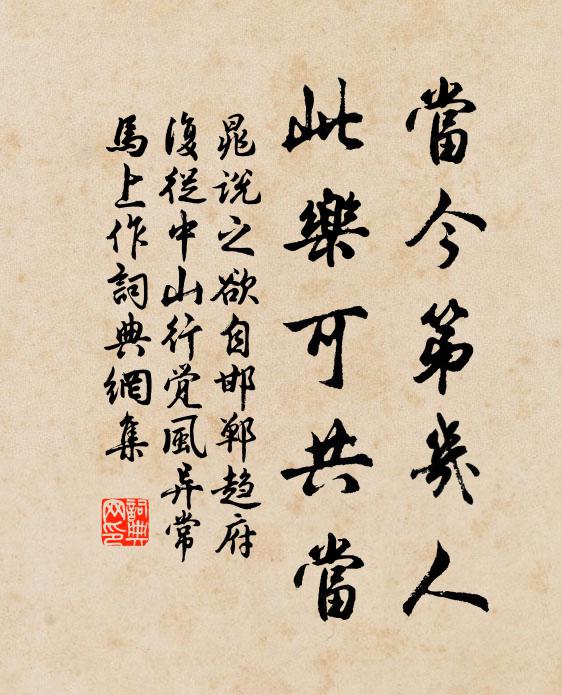 當今第幾人
此樂可共當
晁說之欲自邯鄲趋府
復從中山行覚風异常
馬上作詞典網集
詞典
网印